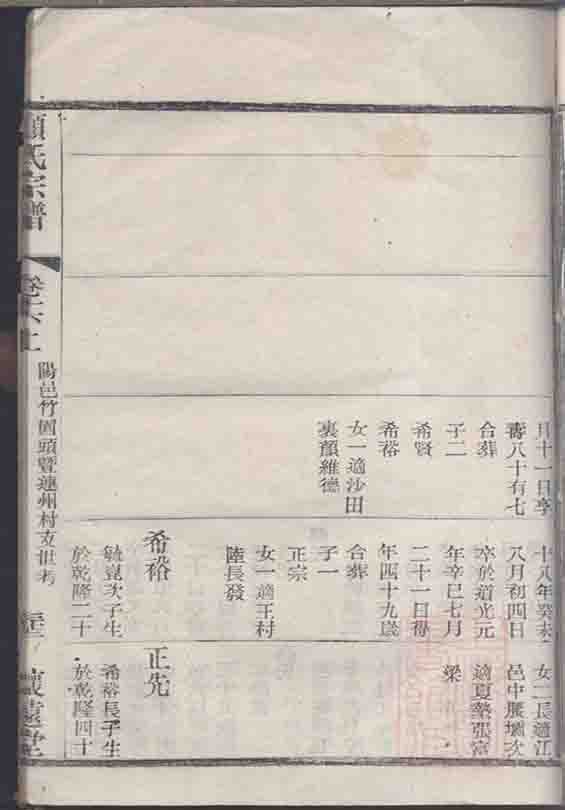 月十一日享
壽八十有七
合葬
子二
希賢
希裕
女一適沙田
裏顏維德
十八年癸未
八月初四日
卒於道光元
年辛巳七月
二十一日得
年四十九歲
合葬
子一
正宗
女一適王村
陸長發
希裕
毓崑次子生
於乾隆二十
女二長適江
邑中腰壩次
適夏墊張富
梁
正先
希裕長子生
於乾隆四十
氏宗譜
卷六上
陽邑竹園頭暨連州村支世考
遠堂